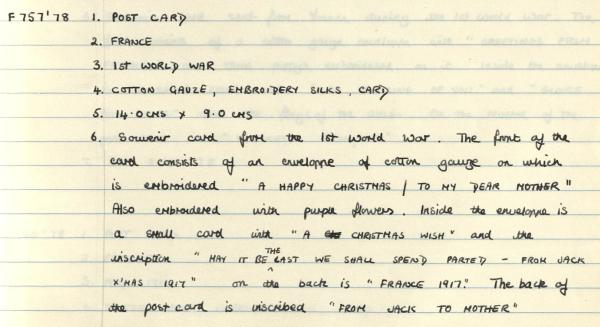 F757'78 1. POST CARD
2. FRANCE
3. 1ST WORLD WAR
4. COTTON GAUZE, EMBROIDERY SILKS, CARD
5. 14.0CMS X 9.0CMS
6. Souvenir card from the 1st World War. The front of the
card consists of an enveloppe of cotton gauze on which
is embroidered "A HAPPY CHRISTMAS / TO MY DEAR MOTHER"
Also embroidered with purple flowers. Inside the enveloppe is
a small card with "A CHRISTMAS WISH" and the
inscription "MAY IT BE THE LAST WE SHALL SPEND PARTED - FROM JACK
X'MAS 1917" on the back is "FRANCE 1917." The back of
the post card is inscribed "FROM JACK TO MOTHER"